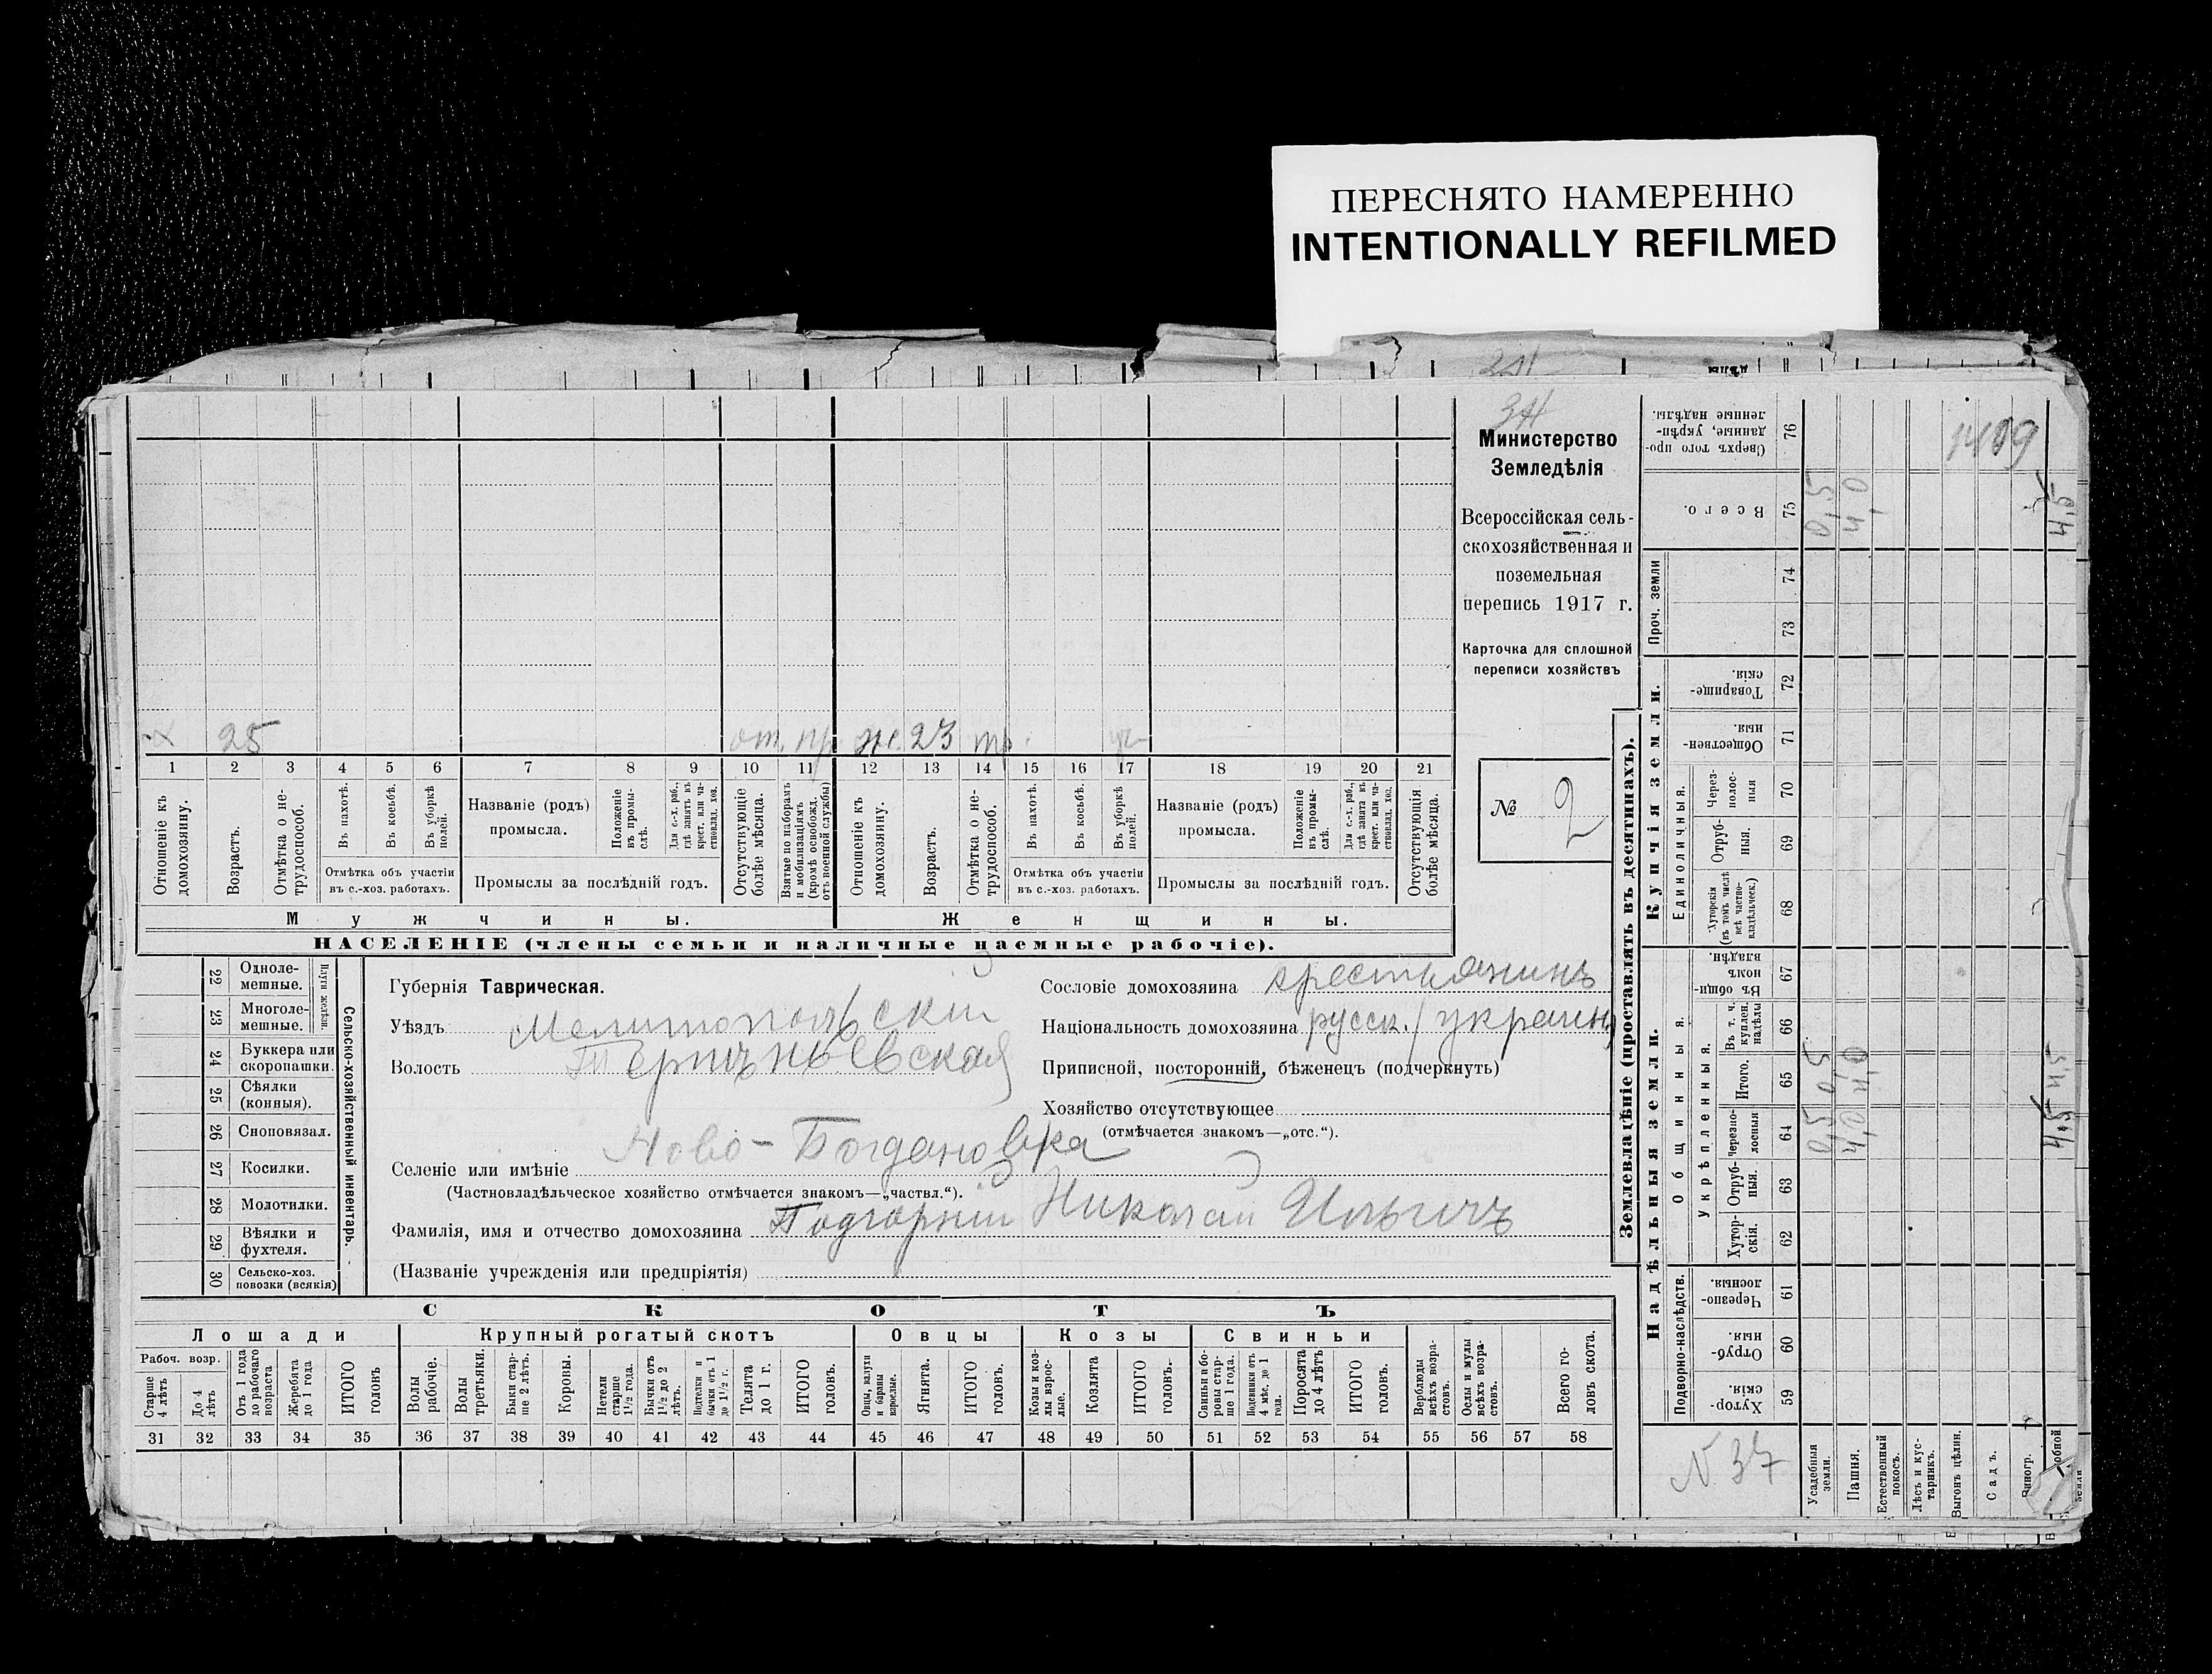 ПЕРЕСНЯТО НАМЕРЕННО
INTENTIONALLY REFILMED
Министерство
Земледѣлія
Всероссійская сель-
скохозяйственная и
поземельная
перепись 1917 г.
Карточка для сплошной
переписи хозяйствъ
№ 2
х 25 от. пр. ж. 23
1 2 3 4 5 6 7 8 9 10 11 12 13 14 15 16 17 18 19 20 21
Отношеніе къ домохозяину.
Возрастъ.
Отмѣтка о не-трудоспособ.
Въ пахотѣ.
Въ косьбѣ.
Въ уборкѣ полей.
Отмѣтка объ участіи
въ с.-хоз. работахъ.
Названіе (родъ)
промысла.
Положеніе въ промы-слѣ.
Для с.-х. раб., гдѣ занятъ въ крест. или ча-стновлад. хоз.
Промыслы за послѣдній годъ.
Отсутствующіе болѣе мѣсяца.
Взятые по наборамъ и мобилизаціямъ (кромѣ освобожд. отъ военной службы)
Отношеніе къ домохозяину.
Возрастъ.
Отмѣтка о не-трудоспособ.
Въ пахотѣ.
Въ косьбѣ.
Въ уборкѣ полей.
Отмѣтка объ участіи
въ с.-хоз. работахъ.
Названіе (родъ)
промысла.
Положеніе въ промы-слѣ.
Для с.-х. раб., гдѣ занята въ крест. или ча-стновлад. хоз.
Промыслы за послѣдній годъ.
Отсутствующія болѣе мѣсяца.
Мужчины. Женщины.
НАСЕЛЕНІЕ (члены семьи и наличные наемные рабочіе).
22 Одноле-мешные.
23 Многоле-мешные.
Плуги желѣзн.
24 Буккера или скоропашки.
25 Сѣялки (конныя).
26 Сноповязал.
27 Косилки.
28 Молотилки.
29 Вѣялки и фухтеля.
30 Сельско-хоз. повозки (всякія)
Сельско-хозяйственный инвентарь.
Губернія Таврическая.
Уѣздъ Мелитопольскій
Волость
Селеніе или имѣніе Ново-Богдановка
(Частновладѣльческое хозяйство отмѣчается знакомъ—„частвл.“).
Фамилія, имя и отчество домохозяина Подгорній Николай Ильичъ
(Названіе учрежденія или предпріятія)
Сословіе домохозяина крестьянинъ
Національность домохозяина русск. / украин)
Приписной, посторонній, бѣженецъ (подчеркнуть)
Хозяйство отсутствующее
(отмѣчается знакомъ—„отс.“).
СКОТЪ
Лошади Крупный рогатый скотъ Овцы Козы Свиньи
Рабоч. возр.
Старше 4 лѣтъ
До 4 лѣтъ
Отъ 1 года до рабочаго возраста
Жеребята до 1 года
ИТОГО головъ
Волы рабочіе.
Волы третьяки.
Быки стар-ше 2 лѣтъ.
Коровы.
Нетели старше 1½ года.
Бычки отъ 1½ до 2 лѣтъ.
Подтелки и бычки отъ 1 до 1½ г.
Телята до 1 г.
ИТОГО головъ.
Овцы, валухи и бараны взрослые.
Ягнята.
ИТОГО головъ.
Козы и коз-лы взрос-лые.
Козлята
ИТОГО головъ.
Свиньи и бо-ровы стар-ше 1 года.
Подсвинки отъ 4 мѣс. до 1 года.
Поросята до 4 лѣтъ
ИТОГО головъ.
Верблюды всѣхъ возра-стовъ.
Ослы и мулы всѣхъ возра-стовъ.
Всего го-ловъ скота.
31 32 33 34 35 36 37 38 39 40 41 42 43 44 45 46 47 48 49 50 51 52 53 54 55 56 57 58
Землевладѣніе (проставлять въ десятинахъ).
Надѣльныя земли. Купчія земли. Проч. земли
Подворно-наслѣдств.
Общинныя.
Укрѣпленныя.
Единоличныя.
59 Хутор-скія.
60 Отруб-ныя.
61 Черезпо-лосныя.
62 Хутор-скія.
63 Отруб-ныя.
64 Черезпо-лосныя 0,5 4,0 4,5
65 Итого. 0,5 4,0 4,5
66 Въ т. ч. куплен. надѣлы
67 Въ общи-номъ владѣн.
68 Хуторскія (въ томъ числѣ всѣ частно-владѣльческ.)
69 Отруб-ныя.
70 Через-полос-ныя
71 Обществен-ныя.
72 Товарище-скія.
73
74
75 Всего. 0,5 4,0 4,5
76 Сверхъ того про-данные, укрѣп-ленные надѣлы.
1409
N 37
Усадебныя земли.
Пашня.
Естественный покосъ.
Лѣсъ и кус-тарникъ.
Выгонъ цѣлин.
Садъ.
Виногр.